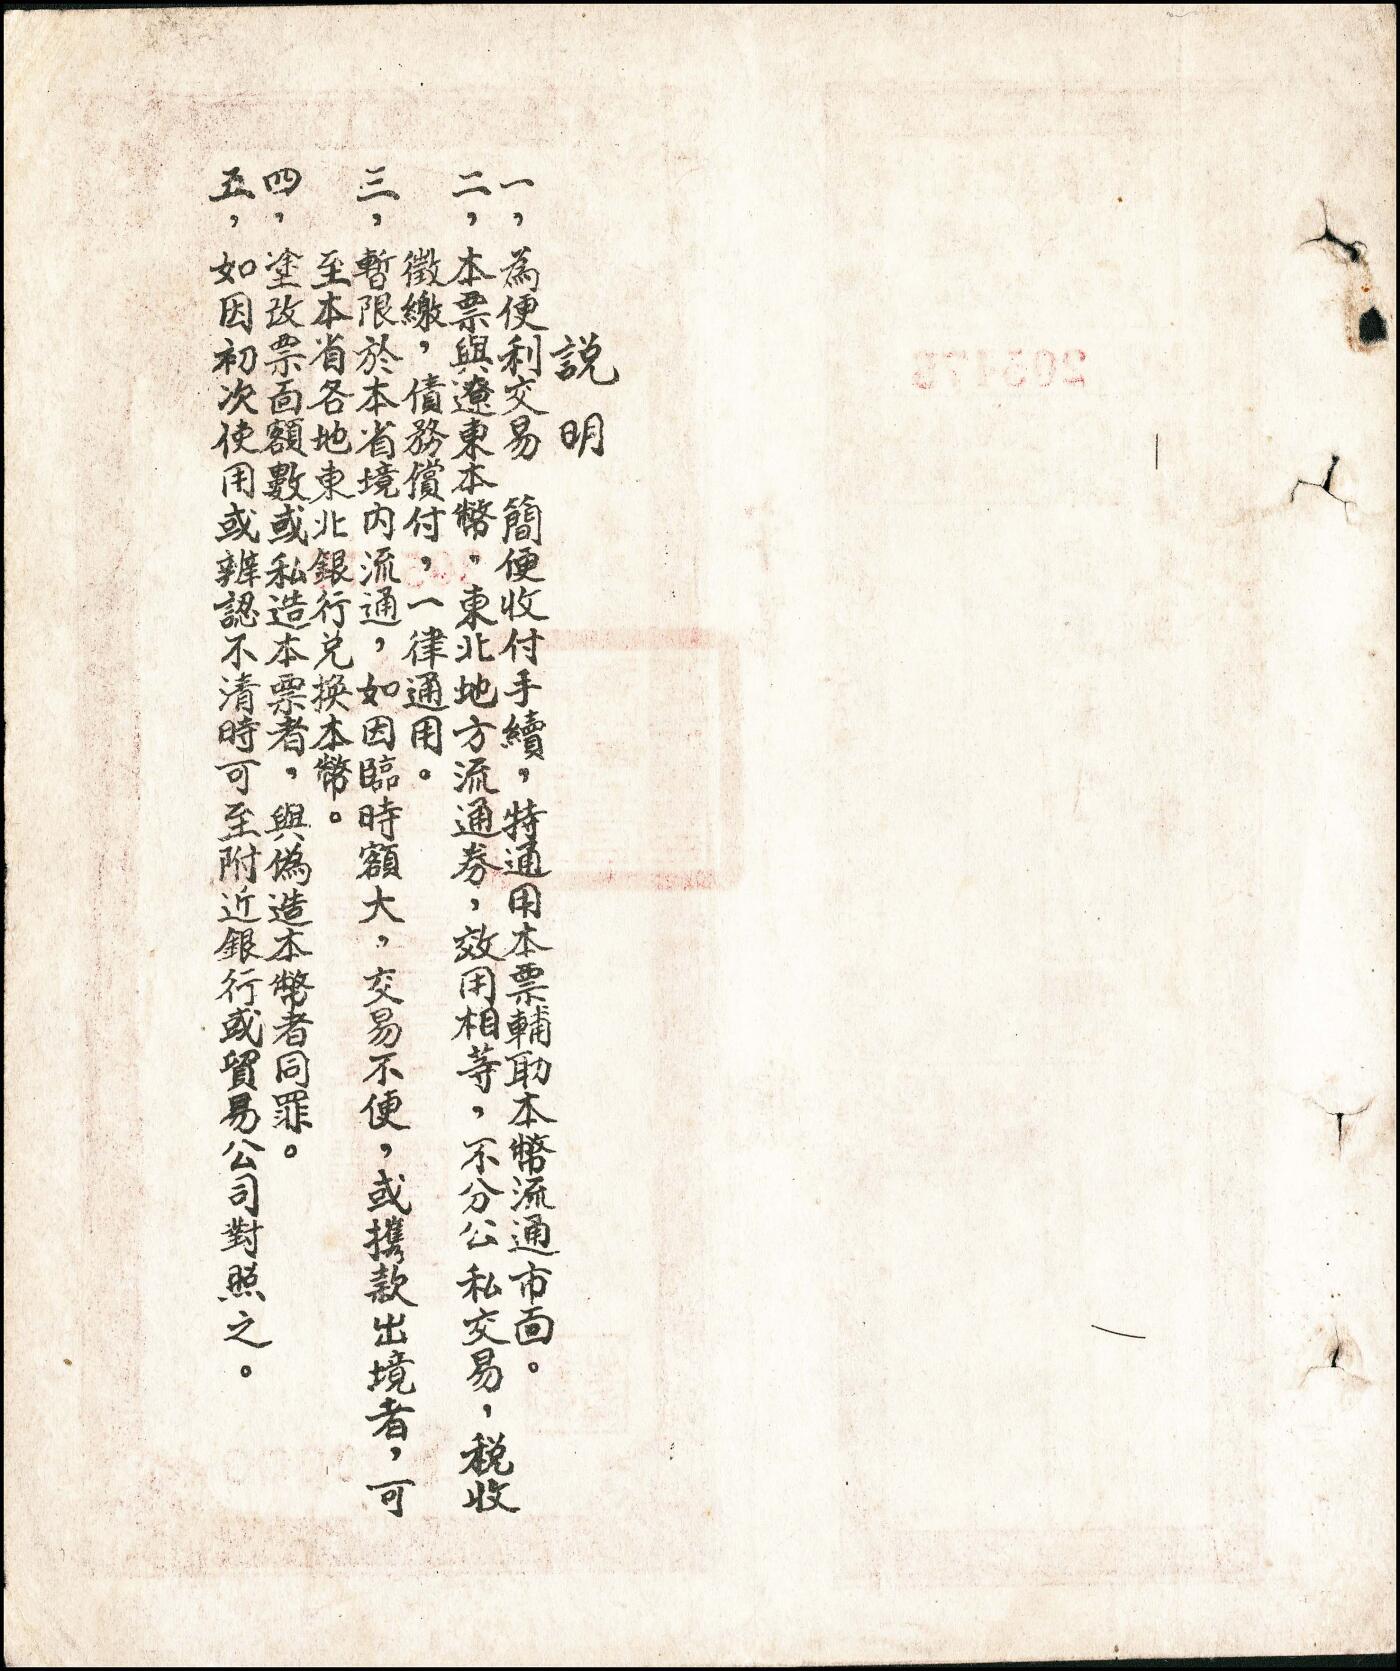 説明
一，為便利交易　簡便收付手續，特通用本票輔助本幣流通市面。
二，本票與遼東本幣。東北地方流通券，效用相等，不分公私交易，稅收
徵繳，債務償付，一律通用。
三，暫限於本省境內流通，如因臨時額大，交易不便，或攜款出境者，可
至本省各地東北銀行兌換本幣。
四，塗改票面額數或私造本票者，與偽造本幣者同罪。
五，如因初次使用或辨認不清時可至附近銀行或貿易公司對照之。